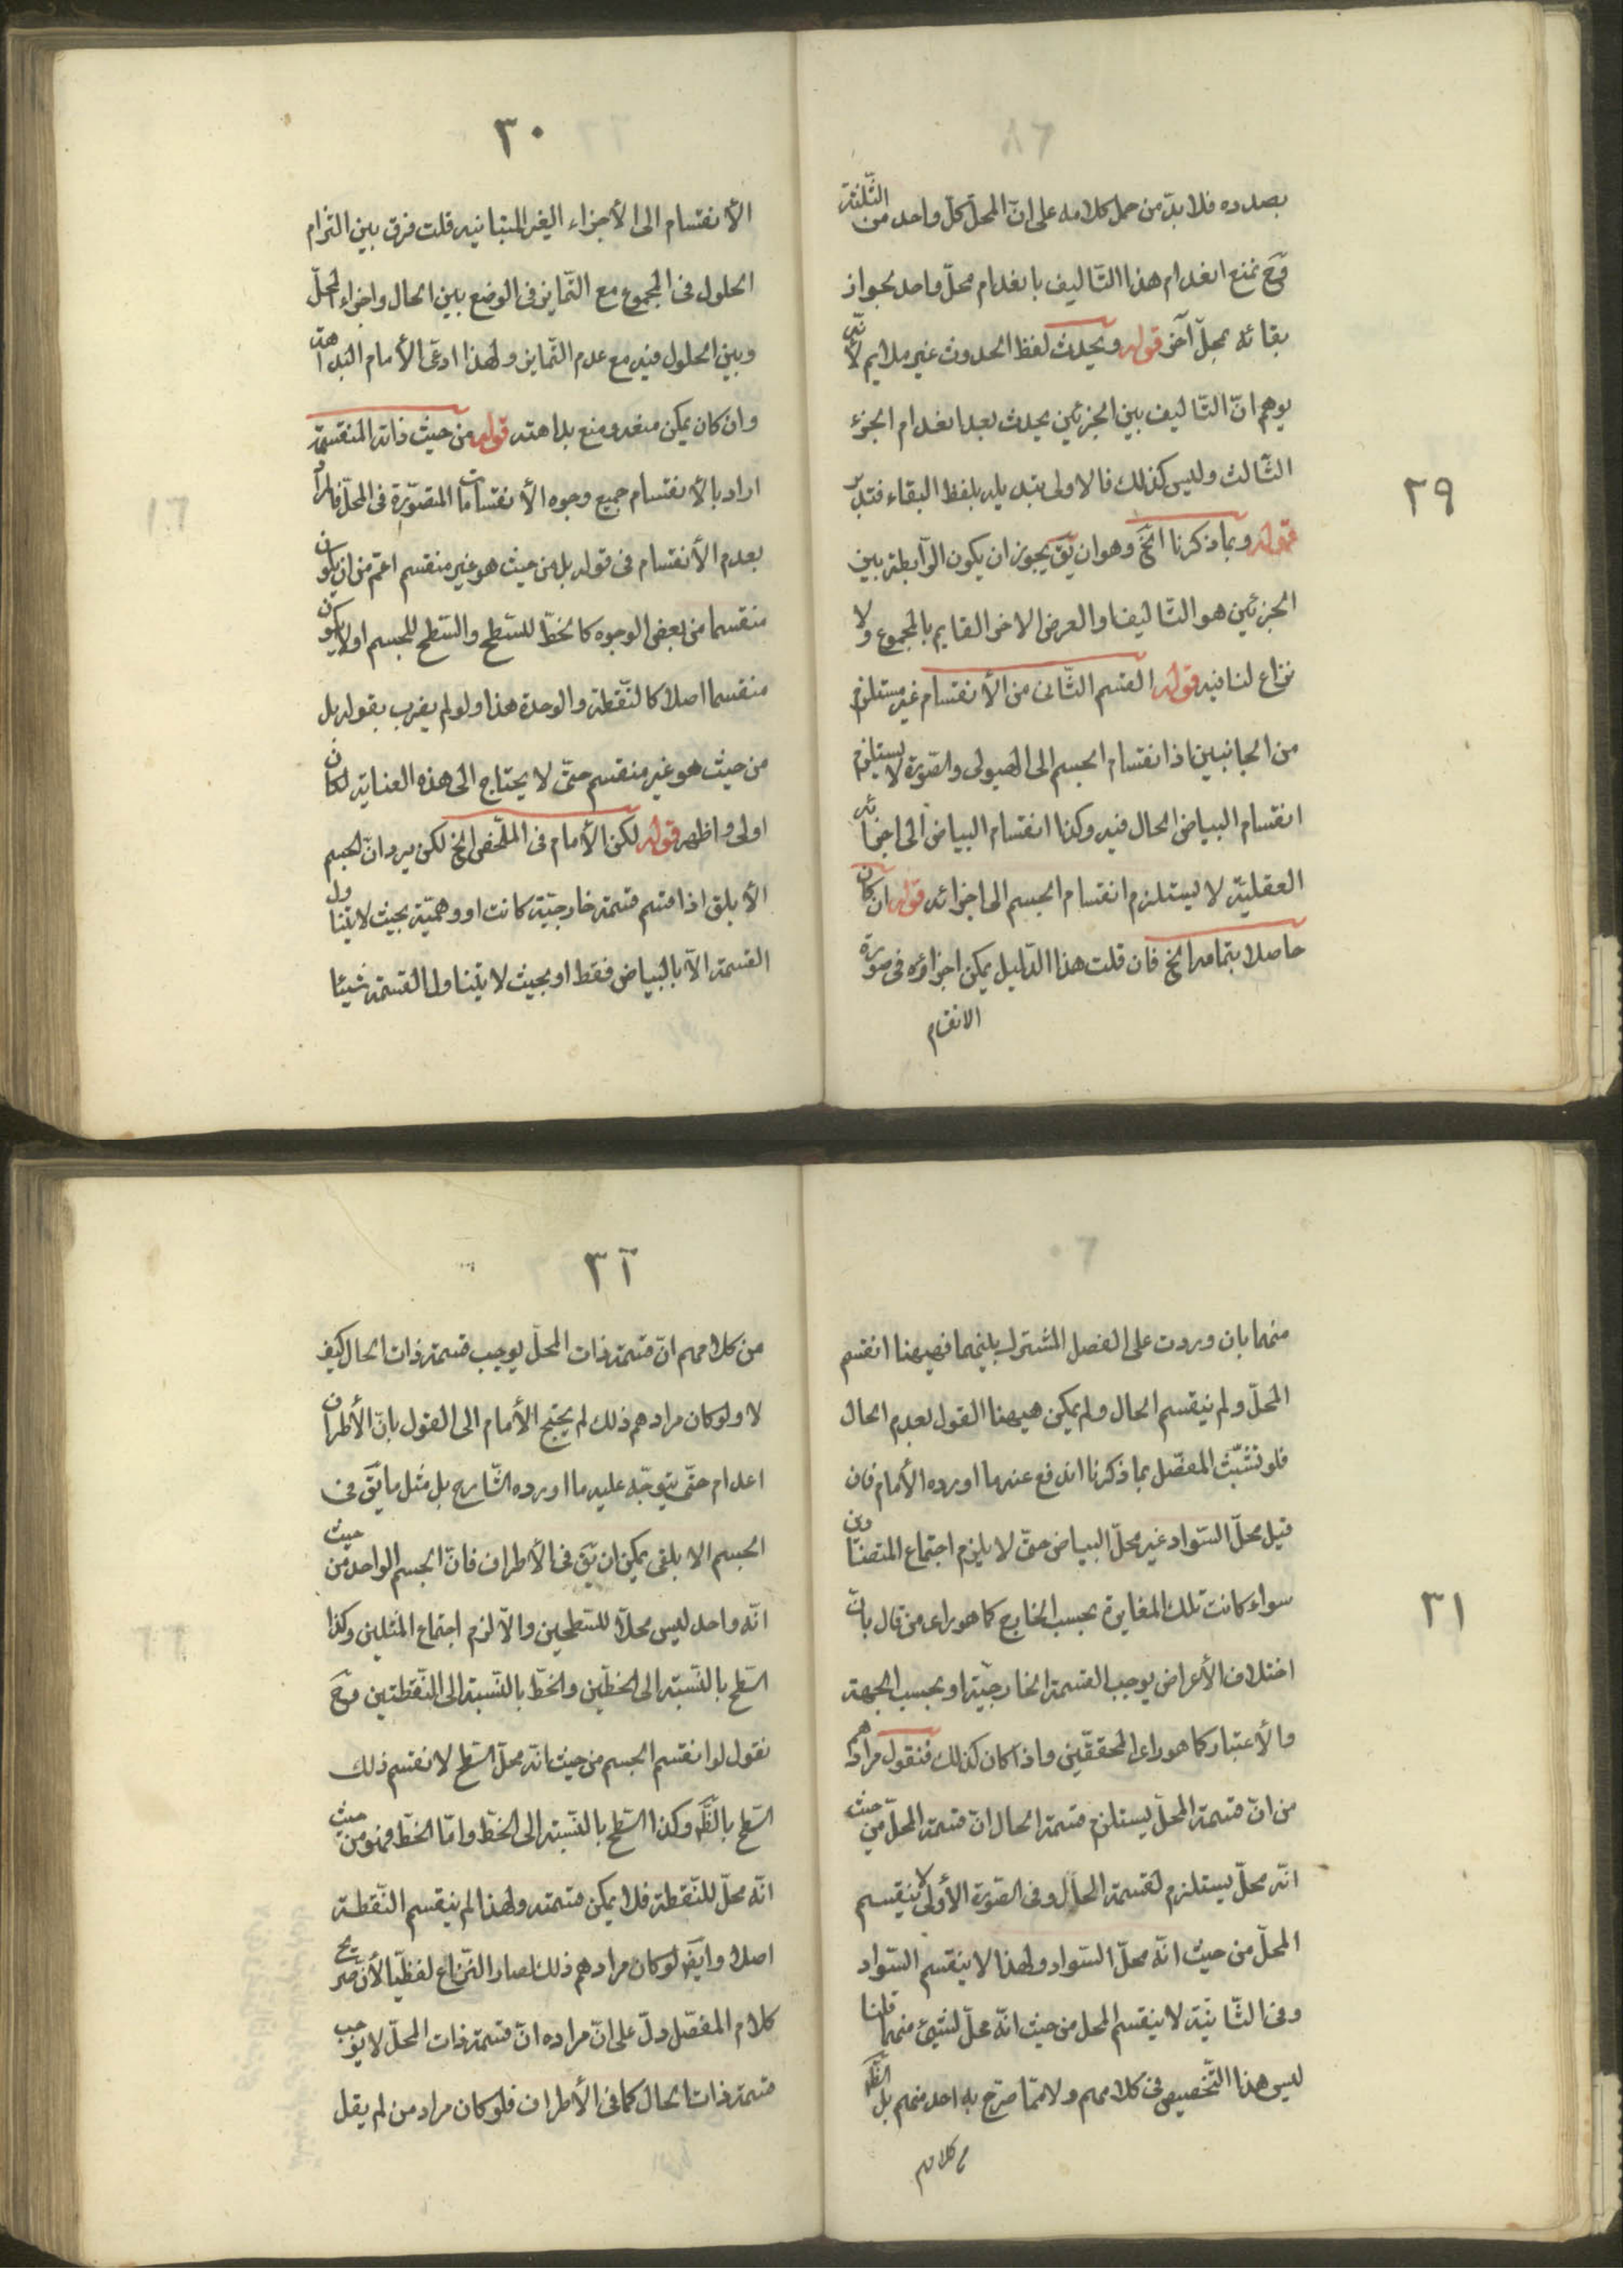 ٢٩
بصدده فلا بدّ من حمل كلامه على انّ المحلّ كلّ واحد من الثّلثة
وحَ نمنع انعدام هذا التّاليف بانعدام محلّ واحد لجواز
بقائه بمحلّ آخر قوله ويحدث لفظ الحدوث غير ملايم لأنّه
يوهم انّ التّاليف بين الجزئين يحدث بعد انعدام الجزؤ
الثّالث وليس كذلك فالاولى تبديله بلفظ البقاء فتدبّر
قوله وبما ذكرنا الخ وهو ان يقَ يجوز ان يكون الرّابطة بين
الجزئين هو التّاليف او العرض الاخر القايم بالمجموع ولا
نزاع لنا فيه قوله القسم الثّانى من الأنقسام غير مستلزم
من الجانبين اذ انقسام الجسم الى الهيولى والصّورة لا يستلزم
انقسام البياض الحال فيه وكذا انقسام البياض الى اجزائه
العقليّة لا يستلزم انقسام الجسم الى اجزائه قوله ان كان
حاصلا بتمامه الخ فان قلت هذا الدّليل يمكن اجراؤه فى صورة
الانقسام
٣٠
الأنقسام الى الأجزاء الغير المتباينه قلت فرق بين التزام
الحلول فى المجموع مع التّمايز فى الوضع بين الحال واجزاء المحلّ
وبين الحلول فيه مع عدم التّمايز ولهذا ادعى الأمام البداهة
وان كان يمكن منعه ومنع بداهته قوله من حيث ذاته المنقسمة
اراد بالأنقسام جميع وجوه الأنقسامات المتصوّرة فى المحلّ فالمراد
بعدم الأنقسام فى قوله بل من حيث هو غير منقسم اعم من ان يكون
منقسما من بعض الوجوه كالخطّ للسّطح والسّطح للجسم او لا يكون
منقسما اصلا كالنّقطة والوحدة هذا ولو لم يضرب بقوله بل
من حيث هو غير منقسم حتّى لا يحتاج الى هذه العناية لكان
اولى واظهر قوله لكن الأمام فى الملخّص الخ لكن يرد انّ الجسم
الأبلق اذا قسم قسمة خارجيّة كانت او وهميّة بحيث لا يتناول
القسمة الّا بالبياض فقط او بحيث لا يتناول القسمة شيئا
٣١
منهما بان وردت على الفصل المشترك بينهما فهيهنا انقسم
المحلّ ولم ينقسم الحال ولم يمكن هيهنا القول بعدم الحال
فلو تشبّث المفصّل بما ذكرنا اندفع عنه ما اورده الأمام فان
قيل محلّ السّواد غير محلّ البياض حتّى لا يلزم اجتماع المتضادين
سواء كانت تلك المغايرة بحسب الخارج كما هو راى من قال بانّ
اختلاف الأعراض يوجب القسمة الخارجيّة او بحسب الجهة
والأعتبار كما هو راى المحقّقين واذا كان كذلك فنقول مرادهم
من انّ قسمة المحلّ يستلزم قسمة الحال انّ قسمة المحلّ من حيث
انّه محلّ يستلزم لقسمة الحال وفى الصّورة الأولى لا ينقسم
المحلّ من حيث انّه محلّ السّواد ولهذا لا ينقسم السّواد
وفى الثّانيّة لا ينقسم المحل من حيث انّه محلّ لشيئ منهما قلنا
ليس هذا التّخصيص فى كلامهم ولا ممّا صرّح به احد منهم بل الظّ
من كلامهم
٣٢
من كلامهم انّ قسمة ذات المحلّ يوجب قسمة ذات الحال كيف
لا ولو كان مرادهم ذلك لم يحتج الأمام الى القول بانّ الأطراف
اعدام حتّى يتوجّه عليه ما اورده الشّارح بل مثل ما يقَ فى
الجسم الابلق يمكن ان يقَ فى الأطراف فانّ الجسم الواحد من حيث
انّه واحد ليس محلّا للسّطحين والّا لزم اجتماع المثلين وكذا
السّطح بالنّسبة الى الخطّين والخطّ بالنّسبة الى النّقطتين وحَ
نقول لو انقسم الجسم من حيث انّه محلّ السّطح لانقسم ذلك
السّطح بالظَّ وكذا السّطح بالنّسبة الى الخطّ وامّا الخطّ فهو من حيث
انّه محلّ للنّقطة فلا يمكن قسمته ولهذا لم ينقسم النّقطة
اصلا وايضَ لو كان مرادهم ذلك لصار النّزاع لفظيّا لأنّ صريح
كلام المفصّل دلّ على انّ مراده انّ قسمة ذات المحلّ لا يوجب
قسمة ذات الحال كما فى الأطراف فلو كان مراد من لم يقل